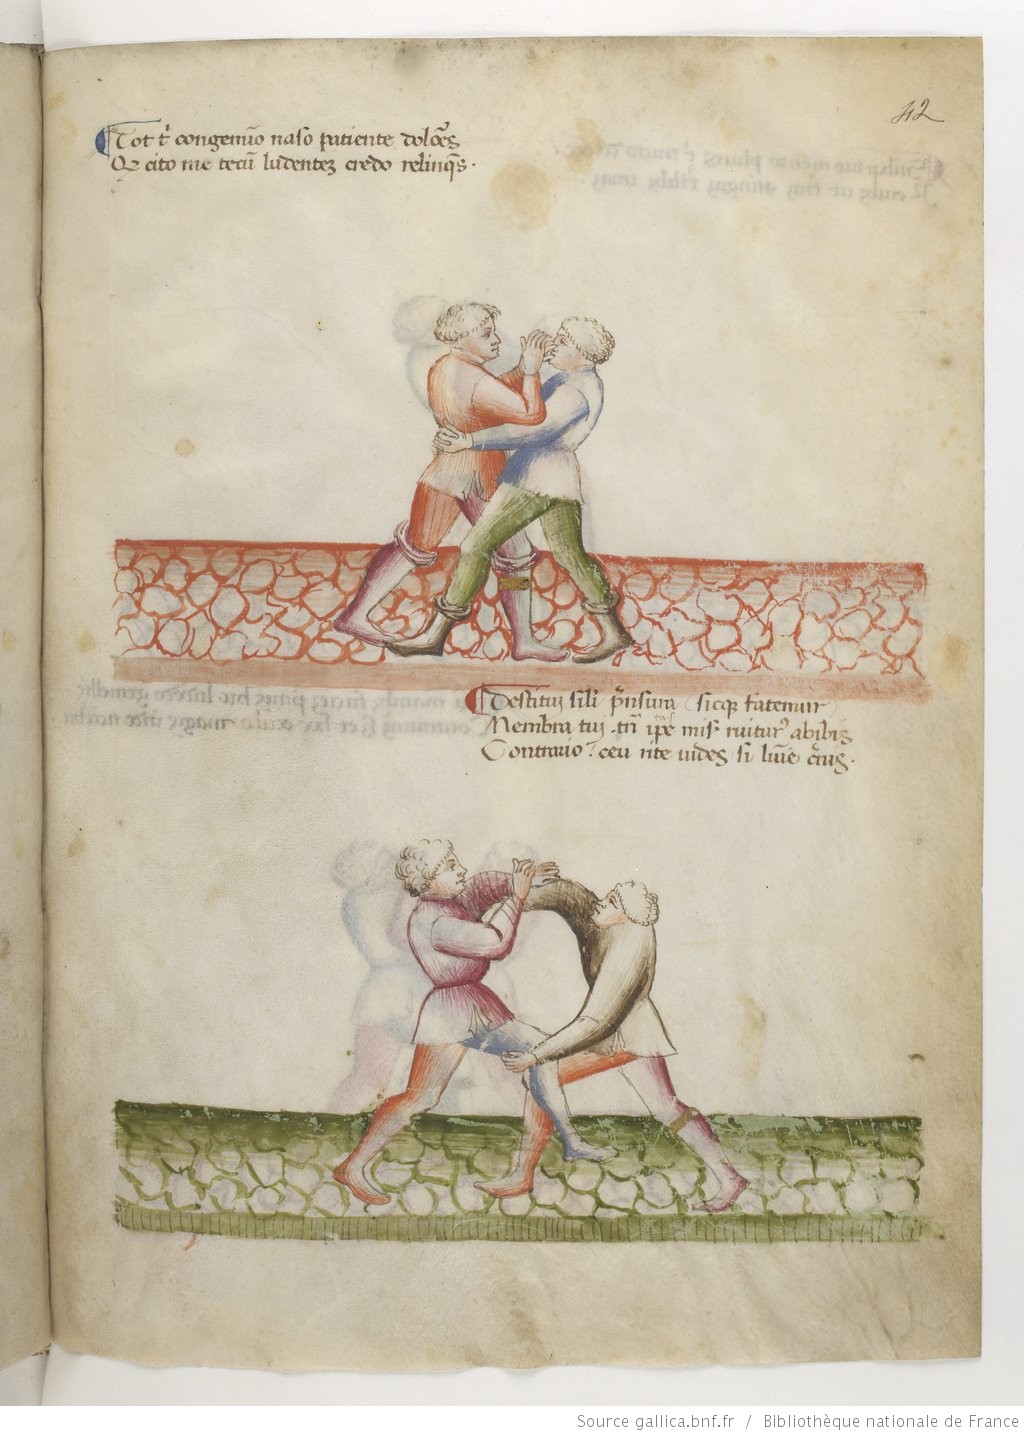 42
Tot t͛ congemīo naso patiente doloꝛ̄es
Qꝫ cito me tecū ludentez credo relinq̄s ·
Destituj sili p̄nsura sicqꝫ fatemur
Membra tuj . tn̄ ip̄e mis͛ ruitur᾿ abibis
Contrario . ceu rite uides si lum̄e c̄nis .
Source gallica.bnf.fr / Bibliothèque nationale de France